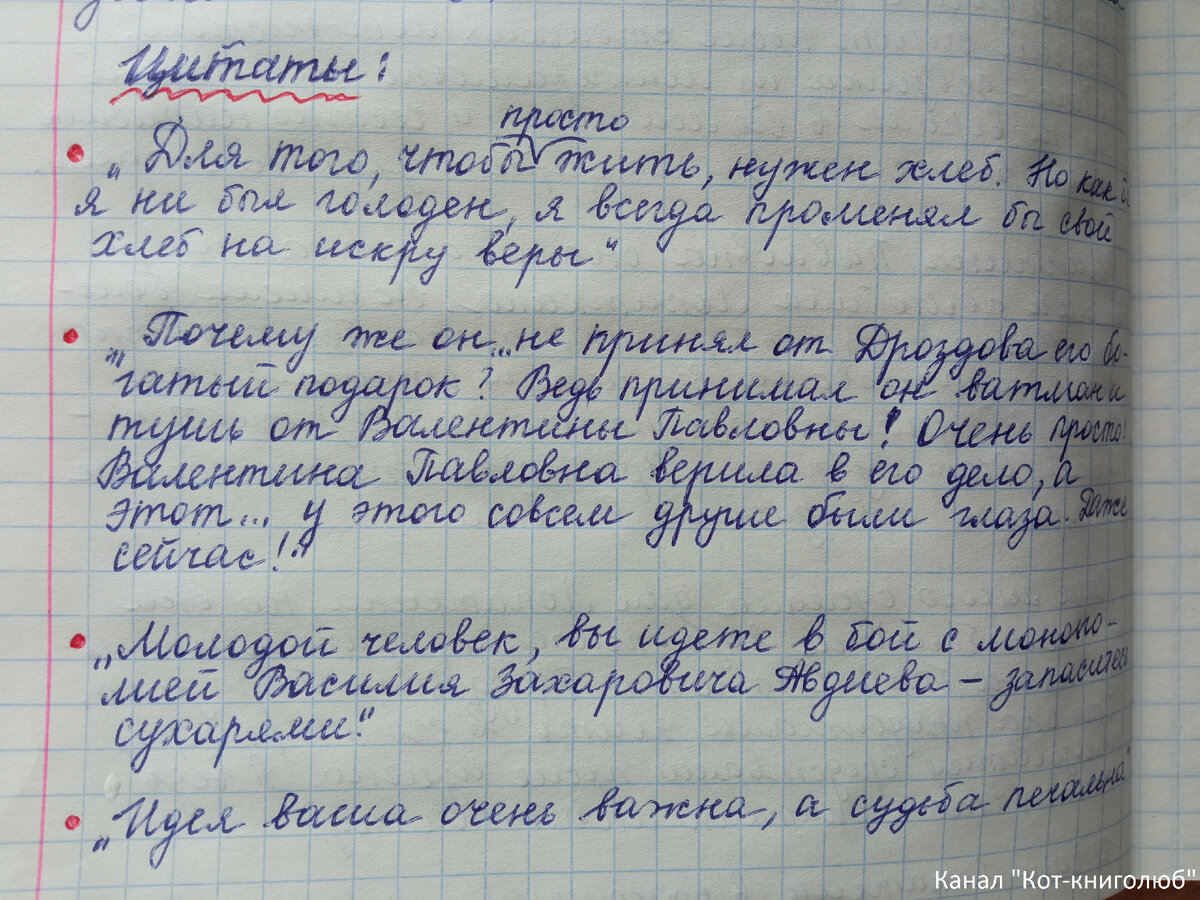 Цитаты:
просто
• „Для того, чтобы жить, нужен хлеб. Но как бы
я ни был голоден, я всегда променял бы свой
хлеб на искру веры“
• „Почему же он... не принял от Дроздова его бо-
гатый подарок? Ведь принимал он ватман и
тушь от Валентины Павловны! Очень просто:
Валентина Павловна верила в его дело, а
этот... у этого совсем другие были глаза. Даже
сейчас!“
• „Молодой человек, вы идете в бой с монопо-
лией Василия Захаровича Авдиева – запаситесь
сухарями“.
• „Идея ваша очень важна, а судьба печальна“
Канал "Кот-книголюб"